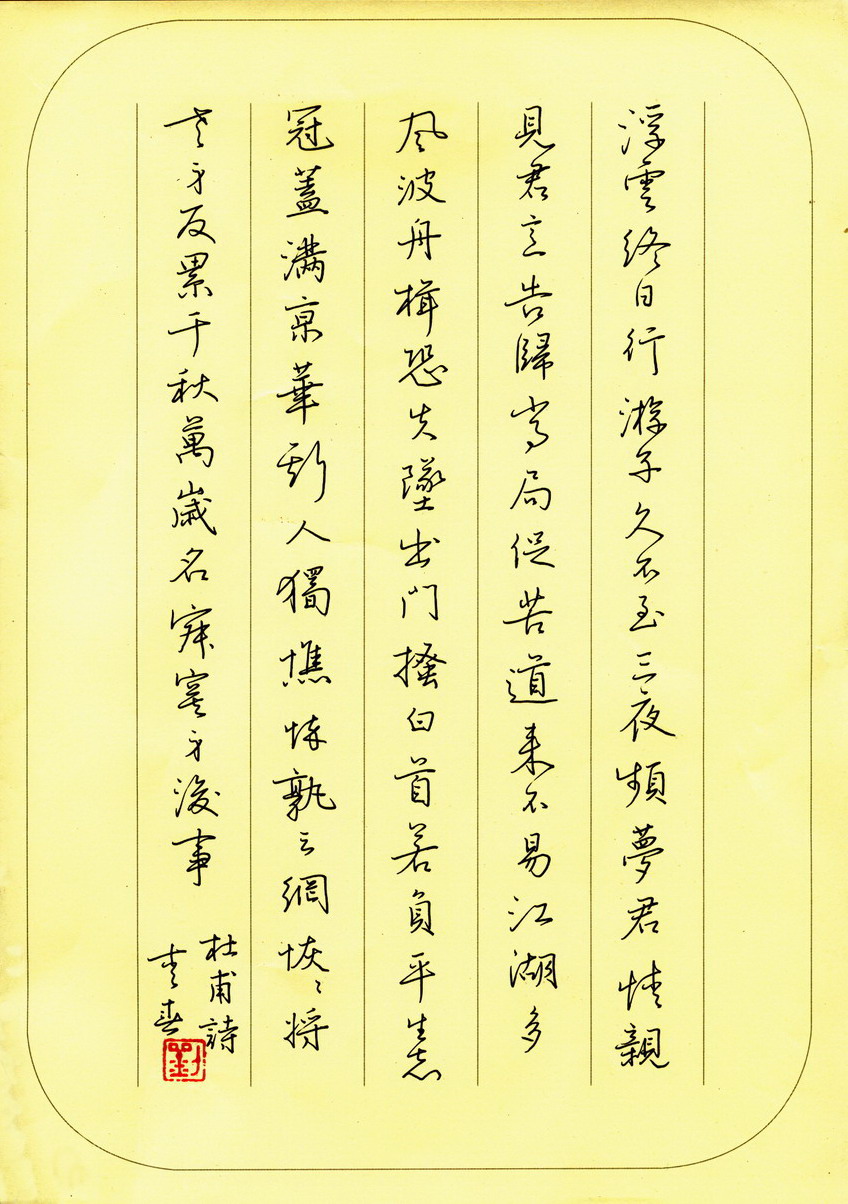 浮雲終日行游子久不至三夜頻夢君情親
見君意告歸常局促苦道来不易江湖多
風波舟楫恐失墜出門搔白首若負平生志
冠蓋滿京華斯人獨憔悴孰云網恢〻將
老身反累千秋萬歲名寂寞身後事
杜甫詩
春
劉